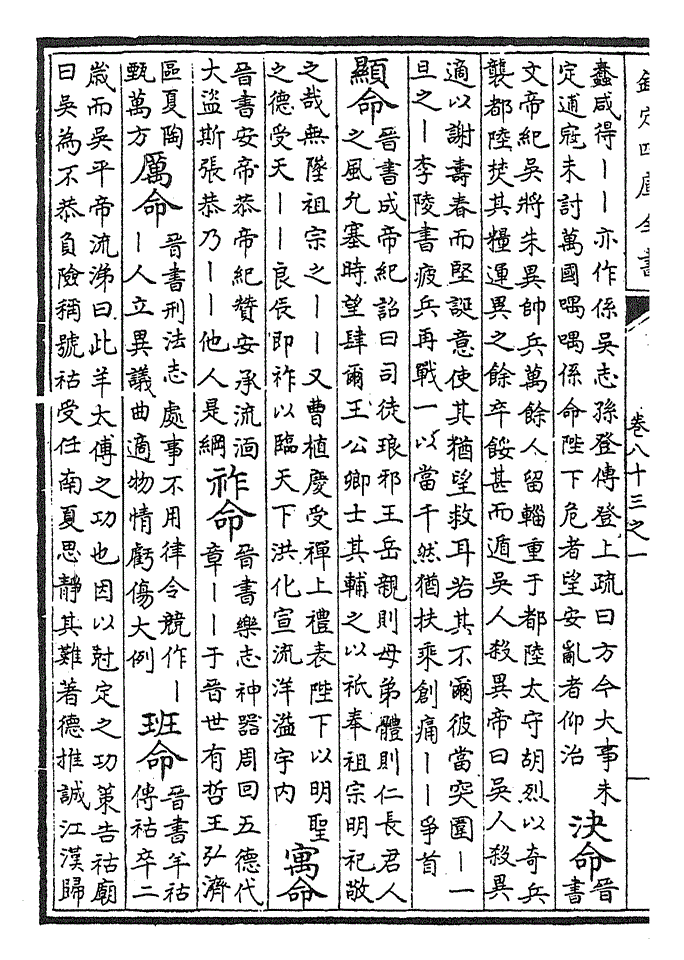 欽定四庫全書
卷八十三之一
蠢咸得丨丨亦作係吳志孫登傳登上疏曰方今大事未
定逋寇未討萬國喁喁係命陛下危者望安亂者仰治
決命
晉
書
文帝紀吳將朱異帥兵萬餘人留輜重于都陸太守胡烈以奇兵
襲都陸焚其糧運異之餘卒餒甚而遁吳人殺異帝曰吳人殺異
適以謝壽春而堅誕意使其猶望救耳若其不爾彼當突圍丨一
旦之丨李陵書疲兵再戰一以當千然猶扶乘創痛丨丨爭首
顯命
晉書成帝紀詔曰司徒琅邪王岳親則母弟體則仁長君人
之風允塞時望肆爾王公卿士其輔之以祇奉祖宗明祀敬
之哉無墜祖宗之丨丨又曹植慶受禪上禮表陛下以明聖
之德受天丨丨良辰即祚以臨天下洪化宣流洋溢宇内
寓命
晉書安帝恭帝紀贊安承流湎
大盜斯張恭乃丨丨他人是綱
祚命
晉書樂志神器周回五德代
章丨丨于晉世有哲王弘濟
區夏陶
甄萬方
厲命
晉書刑法志處事不用律令競作丨
丨人立異議曲適物情虧傷大例
班命
晉書羊祜
傳祜卒二
歲而吳平帝流涕曰此羊太傅之功也因以尅定之功策告祜廟
曰吳為不恭負險稱號祜受任南夏思靜其難著德推誠江漢歸